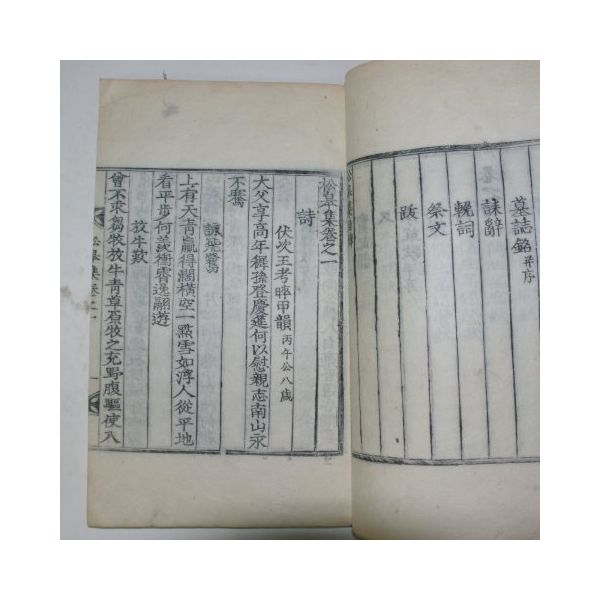 墓誌銘 并序
誄辭
輓詞
祭文
跋
松皐集卷之一
詩
伏次王考晬甲韻 丙午公八歲
大父享高年稚孫登慶進何以慰親志南山永
不騫
詠飛鷺
上有天靑贏得濶橫空一點雪如浮人從平地
看平步何羨衝霄逸翮遊
放牛歎
曾不來芻牧放牛靑草原牧之充野腹驅使入